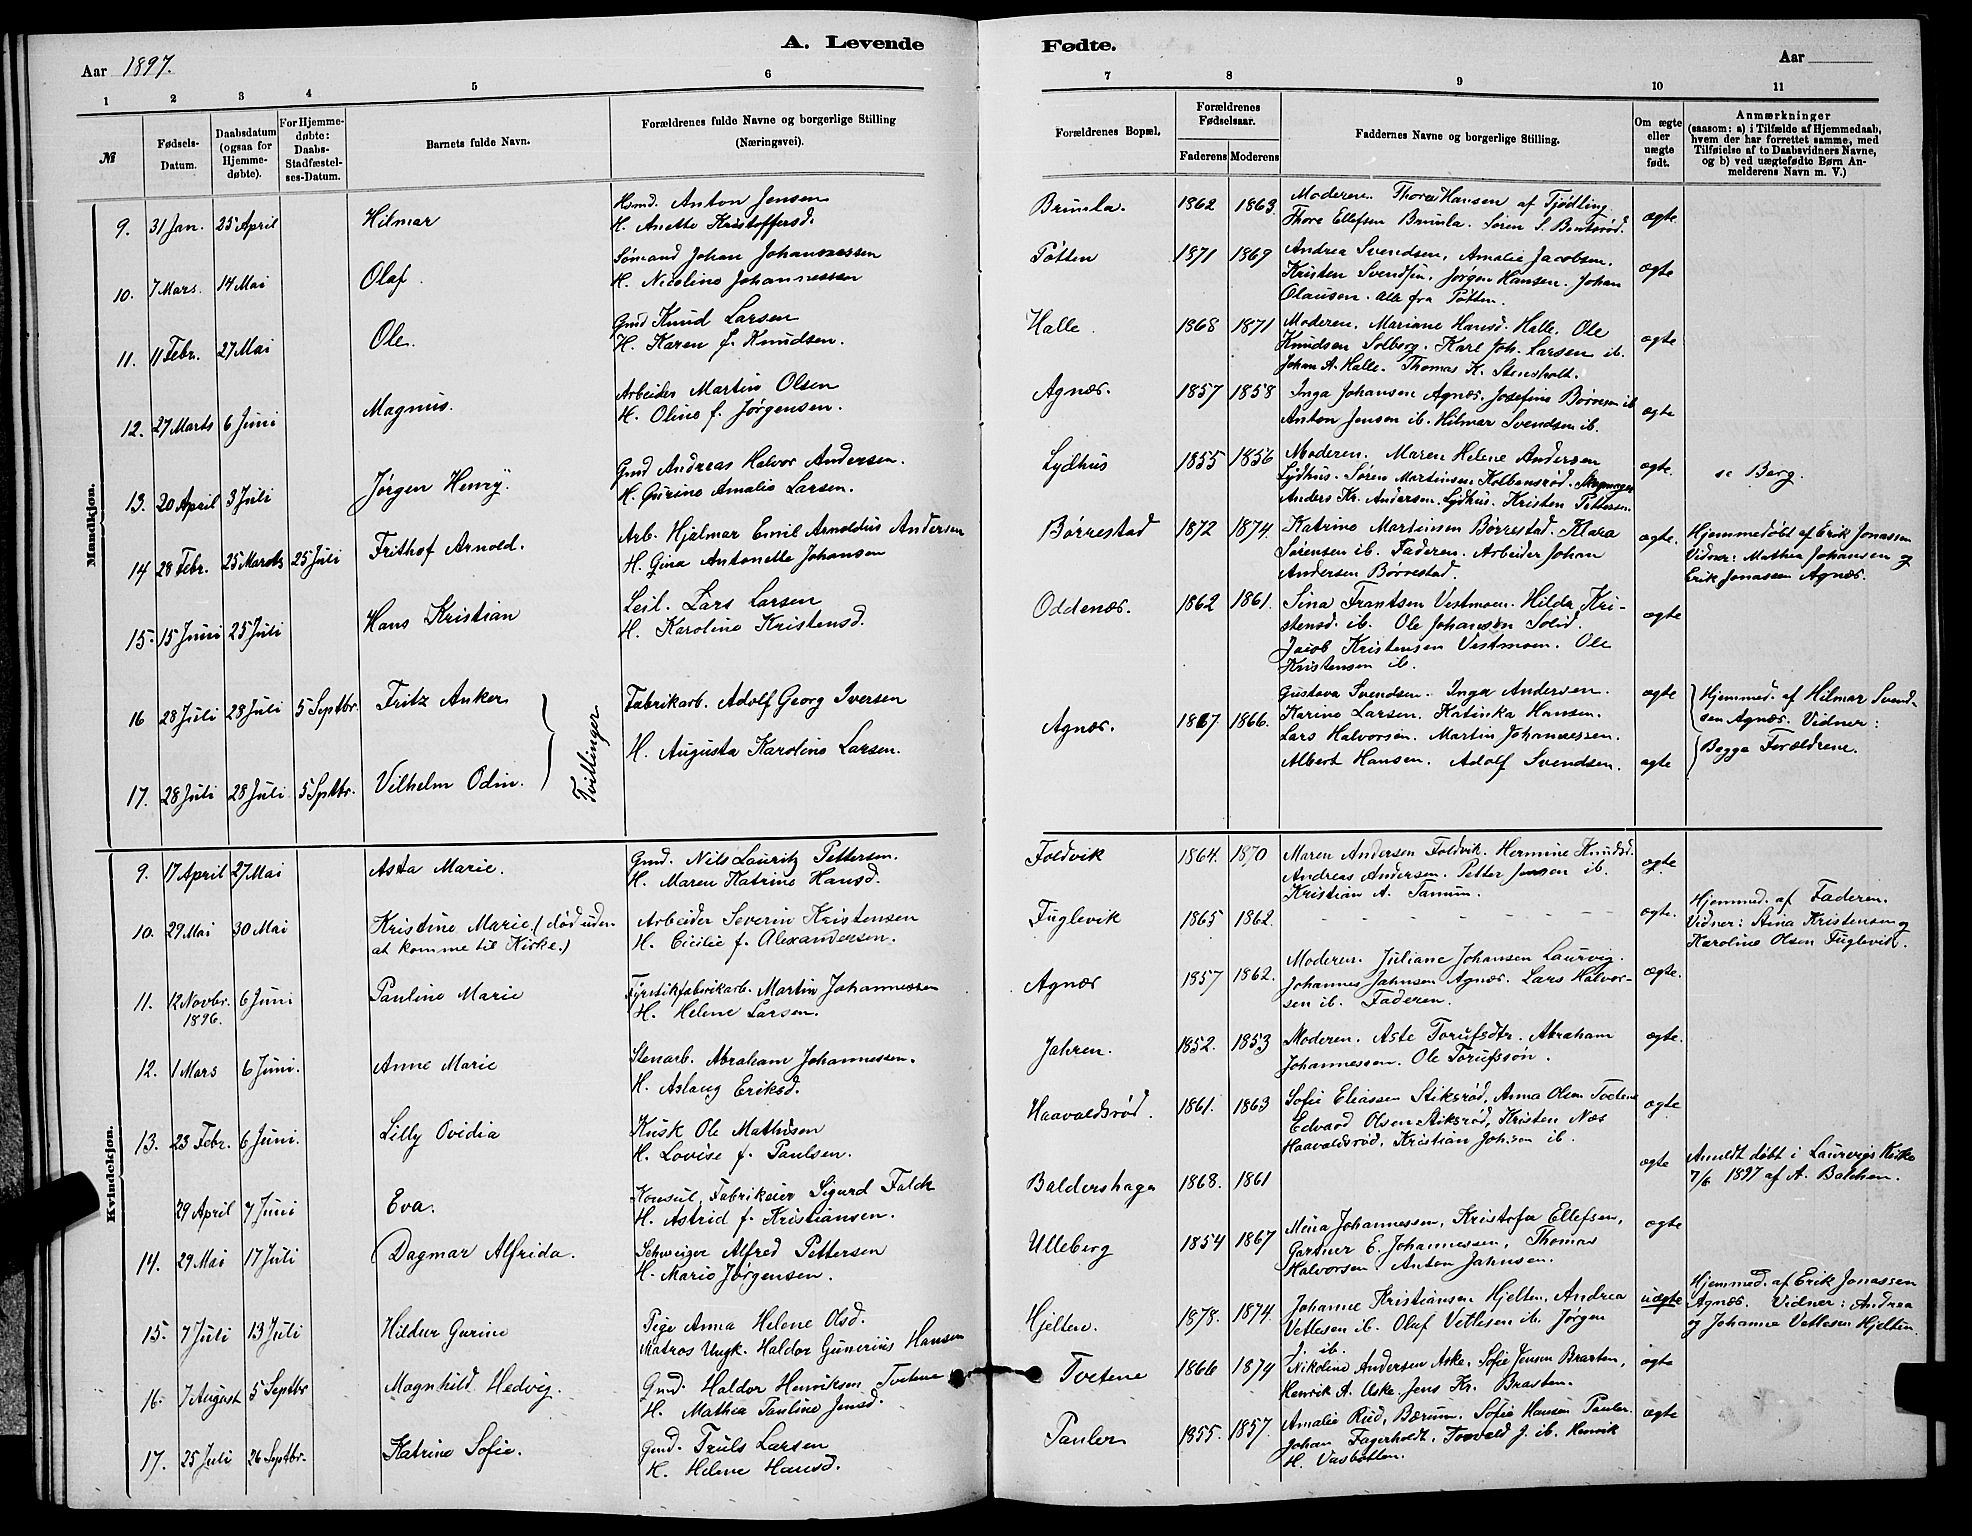 A. Levende
Aar 1897.
1 2 3 4 5 6
№ Fødsels-Datum. Daabsdatum (ogsaa for Hjemmedøbte). For Hjemmedøbte: Daabs-Stadfæstelses-Datum. Barnets fulde Navn. Forældrenes fulde Navne og borgerlige Stilling (Næringsvei).
Mandkjøn.
Hsmd. Anton Jensen
9. 31 Jan. 25 April Hilmar H. Anette Kristoffersd.
Sømand Johan Johannessen
10. 7 Mars. 14 Mai Olaf. H. Nicoline Johannessen
Gmd Knud Larsen
11. 11 Febr. 27 Mai Ole. H. Karen f. Knudsen.
Arbeider Martin Olsen
12. 27 Marts 6 Juni Magnus. H. Oline f. Jørgensen.
Gmd Andreas Halvor Andersen.
13. 20 April 3 Juli Jørgen Henry. H. Gurine Amalie Larsen.
Arb. Hjalmar Emil Arnoldus Andersen
14 28 Febr. 25 Marts 25 Juli Frithof Arnold. H. Gina Antonette Johansen
Leil. Lars Larsen
15. 15 Juni 25 Juli Hans Kristian H. Karoline Kristensd.
16 28 Juli 28 Juli 5 Septbr. Fritz Anker Tvillinger Fabrikarb. Adolf Georg Iversen
H. Augusta Karoline Larsen.
17. 28 Juli 28 Juli 5 Septbr. Vilhelm Odin.
Kvindekjøn.
Gmd. Nils Lauritz Pettersen.
9. 17 April 27 Mai Asta Marie. H. Maren Katrine Hansd.
10. 29 Mai 30 Mai Kristine Marie. (død uden Arbeider Severin Kristensen
at komme til Kirke.) H. Cicilie f. Alexandersen.
11. 12 Novbr. 1896. 6 Juni Pauline Marie Fyrstikfabrikarb. Martin Johannessen
H. Helene Larsen.
12. 1 Mars 6 Juni. Anne Marie Stenarb. Abraham Johannessen.
H. Aslaug Eriksd.
13. 23 Febr. 6 Juni. Lilly Ovidia Kusk Ole Mathisen
H. Lovise f. Paulsen.
29 April 7 Juni Eva. Konsul, Fabrikeier Sigurd Falck
H. Astrid f. Kristiansen.
14. 29 Mai 17 Juli Dagmar Alfrida. Schweizer Alfred Pettersen
H. Marie Jørgensen.
15. 7 Juli 13 Juli Hildur Gurine Pige Anna Helene Olsd.
Matros Ungk. Haldor Gunerius Hansen
16. 7 August 5 Septbr Magnhild Hedvig. Gmd. Haldor Henriksen Tvetene
H. Mathea Pauline Jensd.
17. 25 Juli 26 Septbr. Katrine Sofie. Gmd. Truls Larsen
H. Helene Hansd.
Fødte.
Aar
7 8 9 10 11
Forældrenes Bopæl. Forældrenes Fødselsaar. Faderens Moderens Faddernes Navne og borgerlige Stilling. Om ægte eller uægte født. Anmærkninger (saasom: a) i Tilfælde af Hjemmedaab, hvem der har forrettet samme, med Tilføielse af to Daabsvidners Navne, og b) ved uægtefødte Børn Anmelderens Navn m. V.)
Brunla. 1862 1863. Moderen. Thora Hansen af Tjødling. ægte
Thore Ellefsen Brunla. Søren S. Bentsrød.
Tøtten 1871 1869 Andrea Svendsen, Amalie Jacobsen. ægte
Kristen Svendsen, Jørgen Hansen. Johan
Olausen. alle fra Tøtten.
Halle. 1868 1871 Moderen. Mariane Hansd. Halle. Ole ægte
Knudsen Solberg. Karl Joh. Larsen ib.
Johan A. Halle. Thomas K. Stensholt.
Agnæs. 1857 1858 Inga Johansen Agnæs. Josefine Børresen ib ægte
Anton Jensen ib. Hilmar Svendsen ib.
Lydhus 1855 1856 Moderen. Maren Helene Andersen ægte. se Berg.
Lydhus. Søren Martinsen Kolbensrød. Skomager
Anders Kr. Andersen. Lydhus. Kristen Pettersen
Børrestad 1872 1874. Katrine Martinsen Børrestad. Klara ægte. Hjemmedøbt af Erik Jonassen
Sørensen ib. Faderen. Arbeider Johan Vidner: Mathia Johansen og
Andersen Børrestad. Erik Jonassen Agnæs.
Oddenæs. 1862 1861. Sina Frantsen Vestmoen. Hilda Kri- ægte
stensd. ib. Ole Johansen Solid.
Jacob Kristensen Vestmoen. Ole
Kristensen ib.
Gustava Svendsen. Inga Andersen. ægte Hjemmed. af Hilmar Svend-
Agnæs. 1867 1866. Karine Larsen. Katinka Hansen. sen Agnæs. Vidner:
Lars Halvorsen. Martin Johannessen. Begge Forældrene.
Albert Hansen. Adolf Svendsen. ægte
Foldvik 1864. 1870 Maren Andersen Foldvik. Hermine Knudsd. ægte.
Andreas Andersen. Petter Jensen ib.
Kristian A. Tanum.
Fuglevik 1865 1862. ægte. Hjemmed. af Faderen.
Vidner: Stina Kristensen og
Karoline Olsen Fuglevik.
Agnæs 1857 1862. Moderen. Juliane Johansen Laurvig. ægte.
Johannes Jahnsen Agnæs. Lars Halvor-
sen ib. Faderen.
Jahren. 1852. 1853 Moderen. Aste Torufsdtr. Abraham ægte.
Johannessen. Ole Torufssøn.
Haavaldsrød. 1861. 1863 Sofie Eliassen Stiksrød, Anna Olsen Tvetene ægte
Edvard Olsen Stiksrød, Kristen Næs
Haavaldsrød, Kristian Johsen ib.
Baldershage 1868. 1861 ægte Anmeldt døbt i Laurvigs Kirke
7/6 1897 af A. Balchen.
Ulleberg 1854 1867 Mina Johannessen, Kristofa Ellefsen, ægte
Gartner E. Johannessen, Thomas
Halvorsen Anton Jahnsen.
Hjelten. 1878. 1874. Johanne Kristiansen Hjelten. Andrea uægte Hjemmed. af Erik Jonassen
Vetlesen ib. Olaf Vetlesen ib. Jørgen Agnæs. Vidner: Andrea
J. ib. og Johanne Vetlesen Hjelten.
Tvetene 1866 1874 Nikoline Andersen Aske, Sofie Jensen Brasten, ægte
Henrik A. Aske. Jens Kr. Brasten.
Pauler 1855. 1857. Amalie Rud, Bærum. Sofie Hansen Pauler. ægte
Johan Fagerholdt. Torvald J. ib. Henrik
H. Vasbotten.